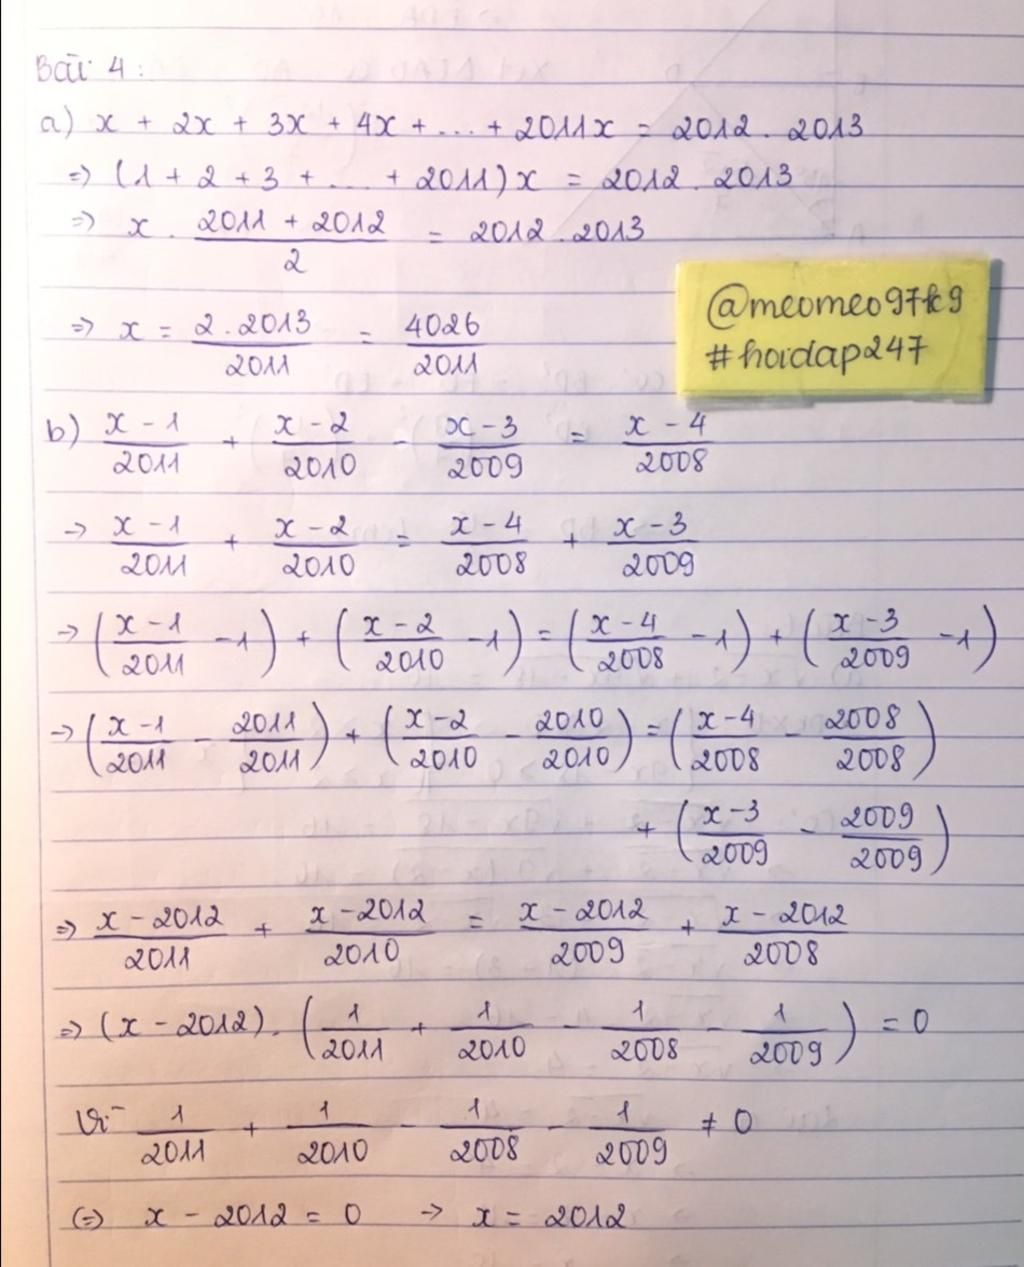 Bài 4:
a) x + 2x + 3x + 4x + ... + 2011x = 2012 . 2013
=> (1 + 2 + 3 + ... + 2011)x = 2012 . 2013
=> x . \frac{2011 + 2012}{2} = 2012 . 2013
@meomeo97k9
#hoidap247
=> x = \frac{2 . 2013}{2011} = \frac{4026}{2011}
b) \frac{x - 1}{2011} + \frac{x - 2}{2010} - \frac{x - 3}{2009} = \frac{x - 4}{2008}
-> \frac{x - 1}{2011} + \frac{x - 2}{2010} = \frac{x - 4}{2008} + \frac{x - 3}{2009}
-> (\frac{x - 1}{2011} - 1) + (\frac{x - 2}{2010} - 1) = (\frac{x - 4}{2008} - 1) + (\frac{x - 3}{2009} - 1)
-> (\frac{x - 1}{2011} - \frac{2011}{2011}) + (\frac{x - 2}{2010} - \frac{2010}{2010}) = (\frac{x - 4}{2008} - \frac{2008}{2008})
+ (\frac{x - 3}{2009} - \frac{2009}{2009})
=> \frac{x - 2012}{2011} + \frac{x - 2012}{2010} = \frac{x - 2012}{2009} + \frac{x - 2012}{2008}
=> (x - 2012) . (\frac{1}{2011} + \frac{1}{2010} - \frac{1}{2008} - \frac{1}{2009}) = 0
Vì \frac{1}{2011} + \frac{1}{2010} - \frac{1}{2008} - \frac{1}{2009} ≠ 0
(=) x - 2012 = 0 -> x = 2012